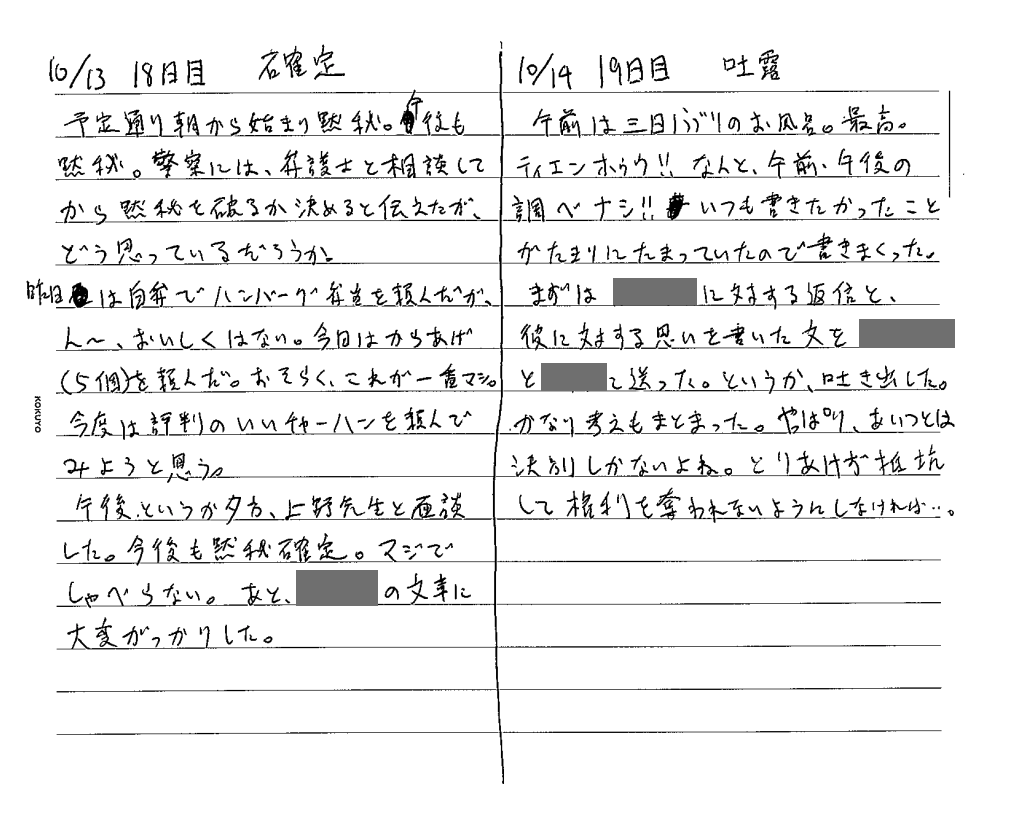 10/13 18日目 確定
予定通り朝から始まり黙秘。午後も
黙秘。警察には、弁護士と相談して
から黙秘を破るか決めると伝えたが、
どう思っているだろうか。
昨日は自弁でハンバーグ弁当を頼んだが、
ん〜、おいしくはない。今日はからあげ
(5個)を頼んだ。おそらく、これが一番マシ。
今度は評判のいいチャーハンを頼んで
みようと思う。
午後というか夕方、上野先生と面談
した。今後も黙秘確定。マジで
しゃべらない。あと、の文章に
大変がっかりした。
KOKUYO
10/14 19日目 吐露
午前は三日ぶりのお風呂。最高。
ティエンホゥウ!! なんと、午前、午後の
調べナシ!! いつも書きたかったこと
がたまりにたまっていたので書きまくった。
まずは に対する返信と、
彼に対する思いを書いた文を
と に送った。というか、吐き出した。
かなり考えもまとまった。やっぱり、あいつとは
決別しかないよね。とりあけず抵抗
して権利を奪われないようにしなければ…。